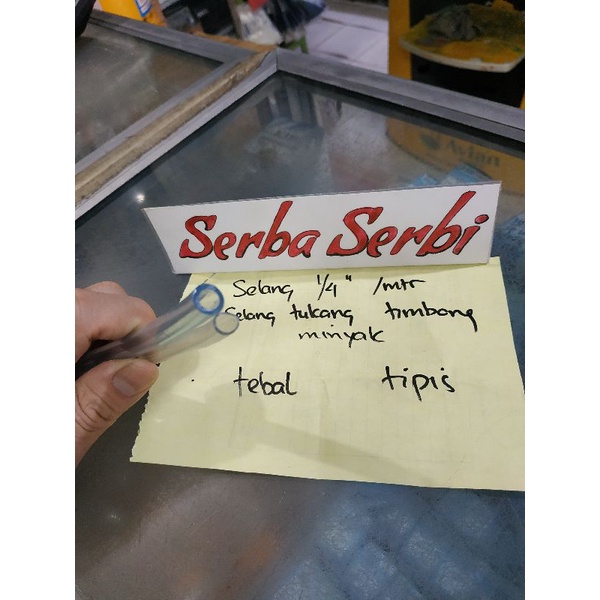 Avian
Serba Serbi
Selang 1/4" /mtr
Selang tukang timbang
minyak
tebal tipis